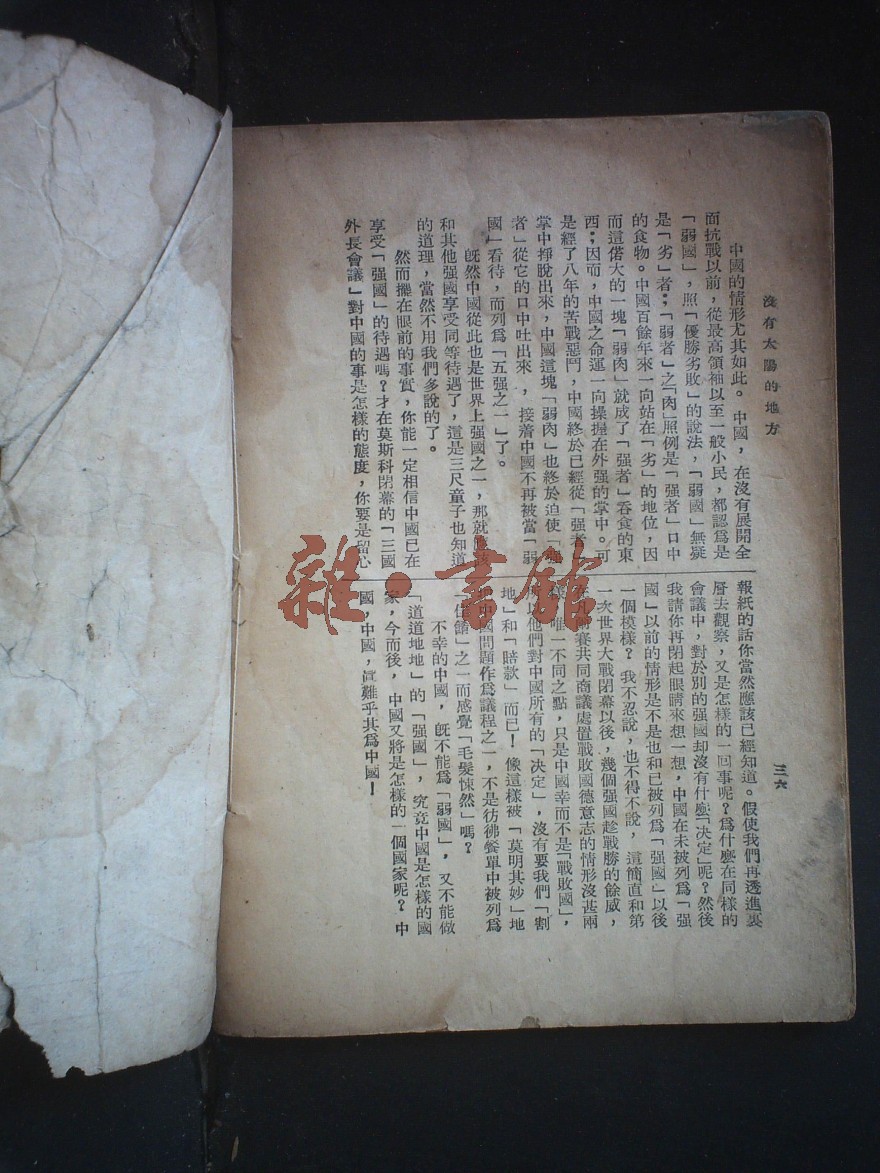 沒有太陽的地方
三六
中國的情形尤其如此。中國，在沒有展開全
面抗戰以前，從最高領袖以至一般小民，都認爲是
「弱國」，照「優勝劣敗」的說法，「弱國」無疑
是「劣」者；「弱者」之「肉」照例是「强者」口中
的食物。中國百餘年來一向站在「劣」的地位，因
而這偌大的一塊「弱肉」就成了「强者」吞食的東
西；因而，中國之命運一向操握在外强的掌中。可
是經了八年的苦戰惡鬥，中國終於已經從「强者」
掌中掙脫出來，中國這塊「弱肉」也終於迫使「
者」從它的口中吐出來，接着中國不再被當「弱
國」看待，而列爲「五强之一」了。
旣然中國從此也是世界上强國之一，那就應該
和其他强國享受同等待遇了，這是三尺童子也知道
的道理，當然不用我們多說的了。
然而擺在眼前的事實，你能一定相信中國已在
享受「强國」的待遇嗎？才在莫斯科閉幕的「三國
外長會議」對中國的事是怎樣的態度，你要是留心
報紙的話你當然應該已經知道。假使我們再透進裏
層去觀察，又是怎樣的一回事呢？爲什麼在同樣的
會議中，對於別的强國却沒有什麼「决定」呢？然後
我請你再閉起眼睛來想一想，中國在未被列爲「强
國」以前的情形是不是也和已被列爲「强國」以後
一個模樣？我不忍說，也不得不說，這簡直和第
一次世界大戰閉幕以後，幾個强國趁戰勝的餘威，
在凡爾賽共同商議處置戰敗國德意志的情形沒甚兩
樣，唯一不同之點，只是中國幸而不是「戰敗國」，
所以他們對中國所有的「决定」，沒有要我們「割
地」和「賠款」而已！像這樣被「莫明其妙」地
把中國問題作爲議程之一，不是彷彿餐單中被列爲
「佳餚」之一而感覺「毛髮悚然」嗎？
不幸的中國，旣不能爲「弱國」，又不能做
「道道地地」的「强國」，究竟中國是怎樣的國
家，今而後，中國又將是怎樣的一個國家呢？中
國，中國，眞難乎其爲中國！
雜·書館